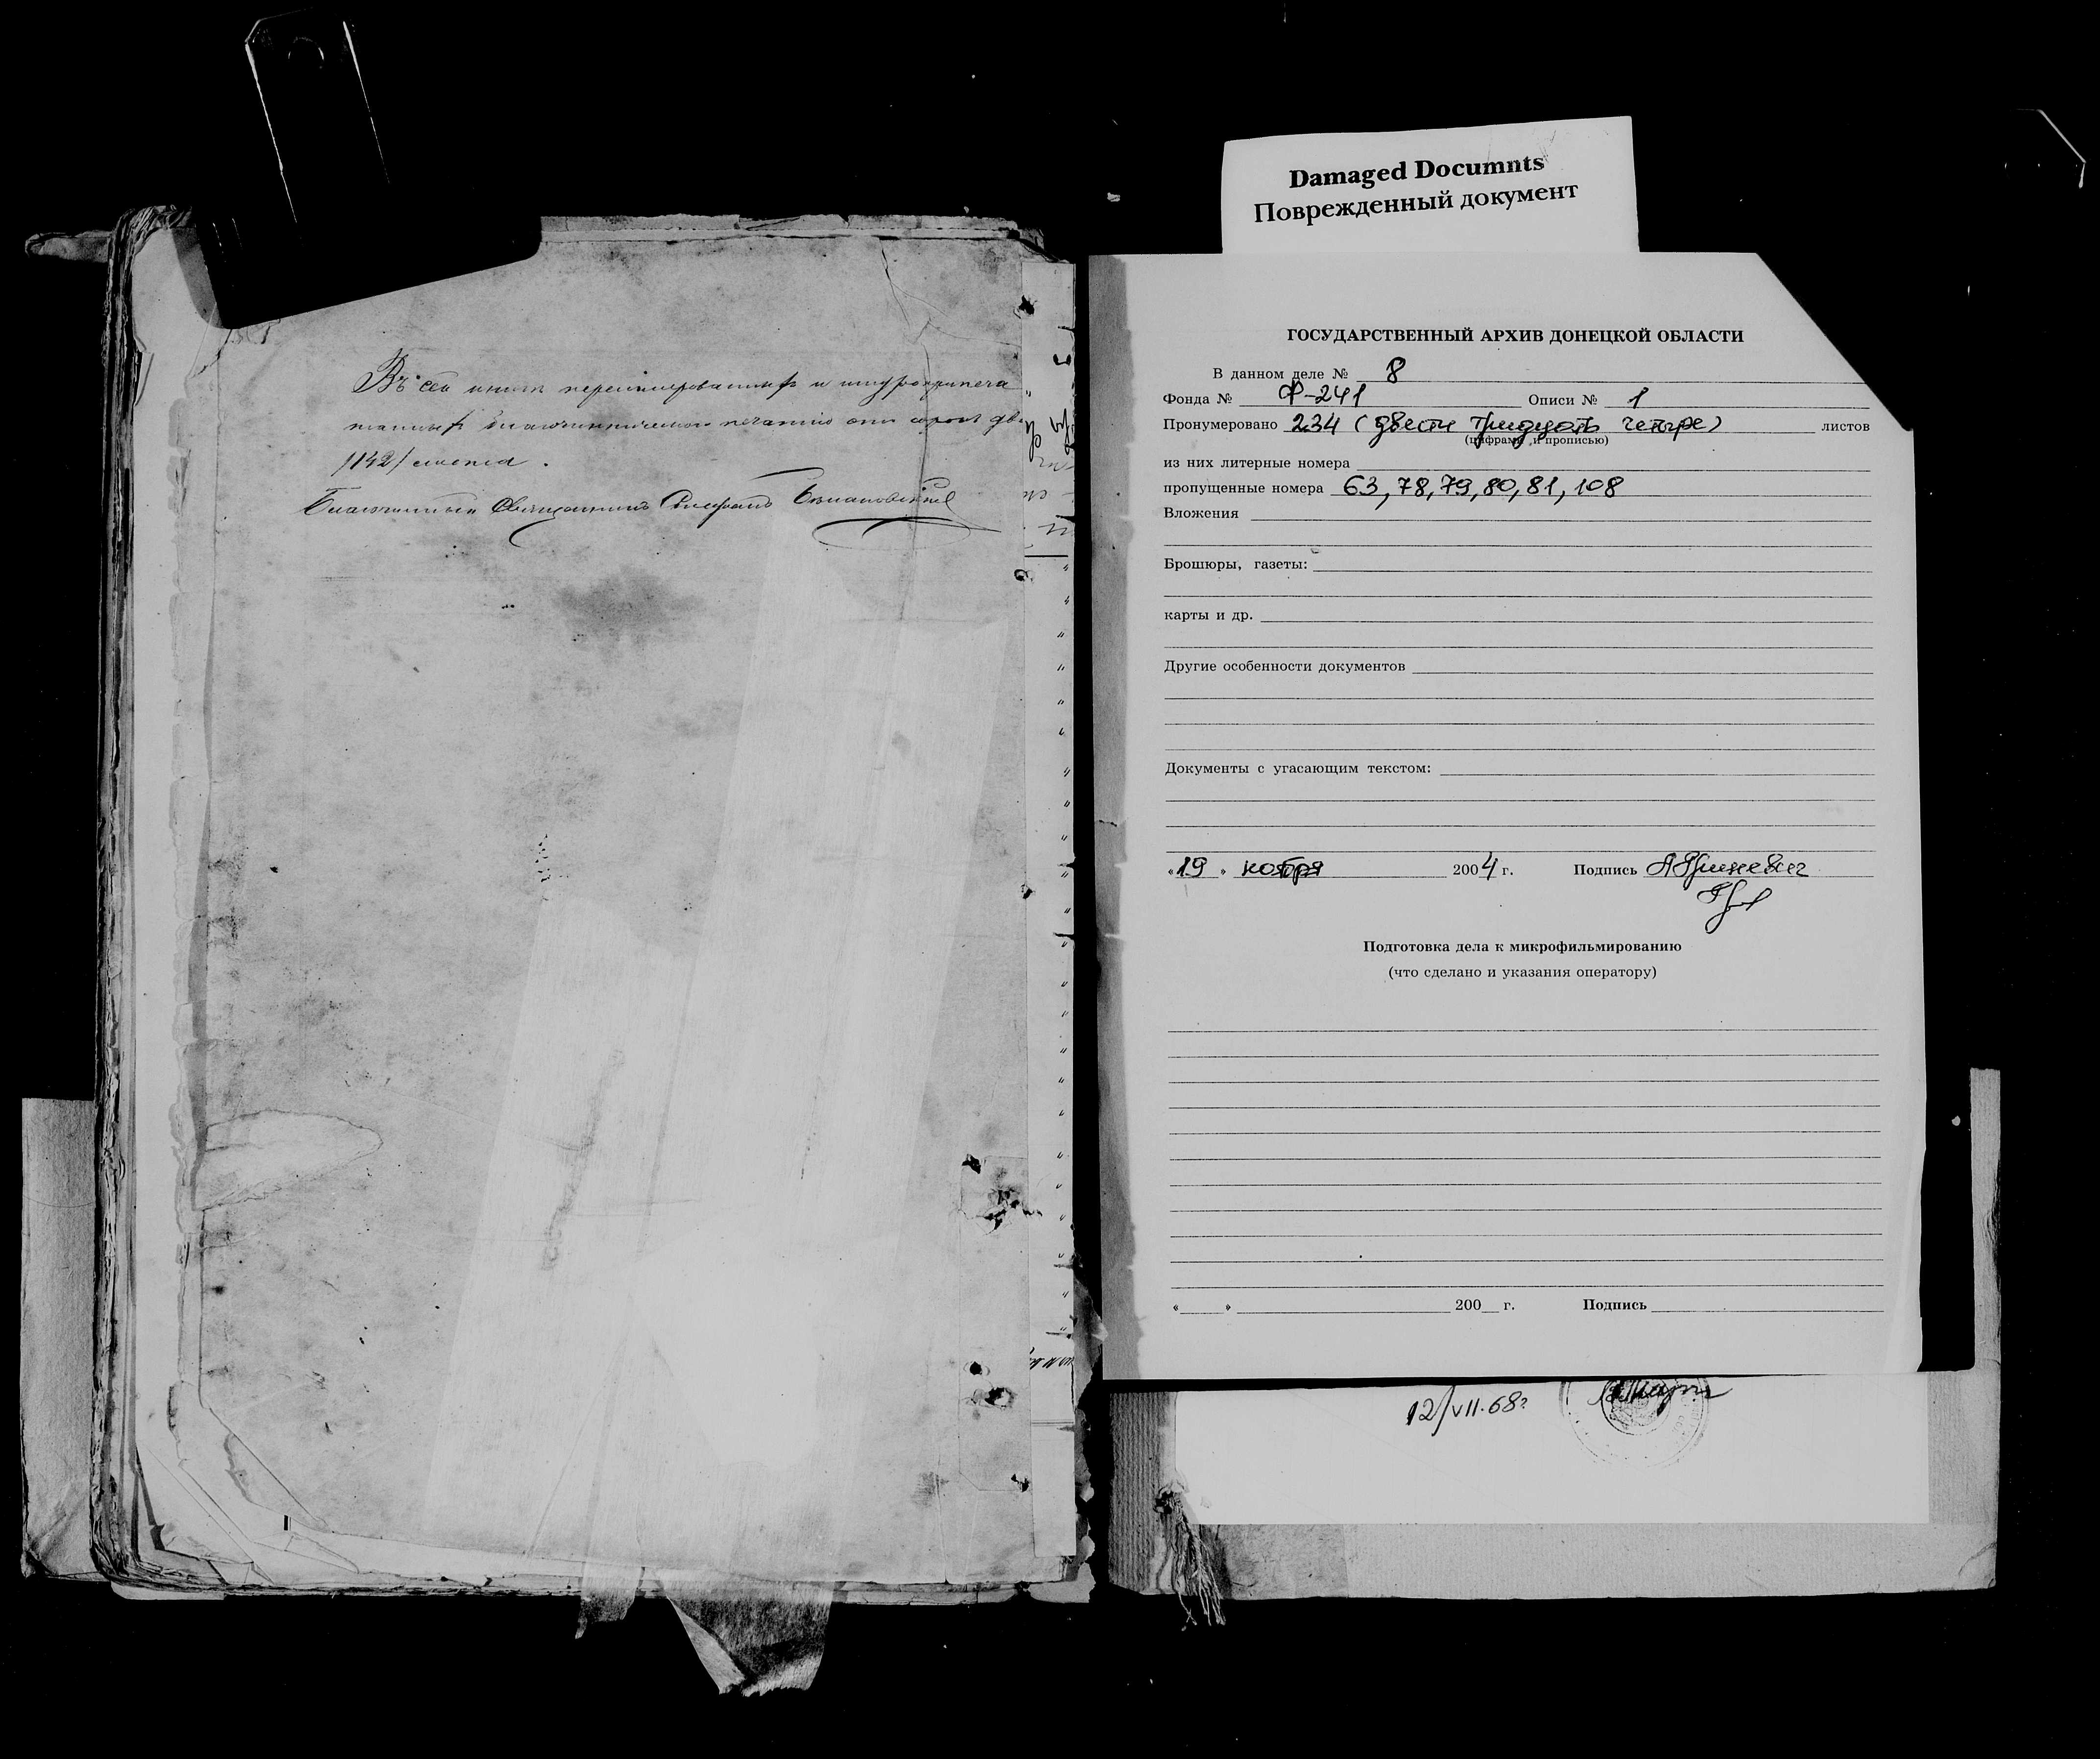 Въ сей книге перенумерованныхъ и шнуроприпеча
танныхъ благочинническою печатью сто сорокъ два
/142/ листа.
Благочинный Священникъ
Damaged Documnts
Поврежденный документ
ГОСУДАРСТВЕННЫЙ АРХИВ ДОНЕЦКОЙ ОБЛАСТИ
В данном деле № 8
Фонда № Ф-241 Описи № 1
Пронумеровано 234 (двести тридцать четыре) листов
(цифрами и прописью)
из них литерные номера
пропущенные номера 63, 78, 79, 80, 81, 108
Вложения
Брошюры, газеты:
карты и др.
Другие особенности документов
Документы с угасающим текстом:
«19» ноября 2004 г. Подпись
Подготовка дела к микрофильмированию
(что сделано и указания оператору)
« » 200 г. Подпись
12/VII.68г